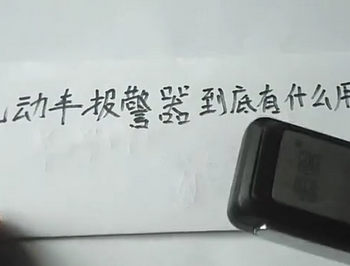 动车报警器到底有什么用